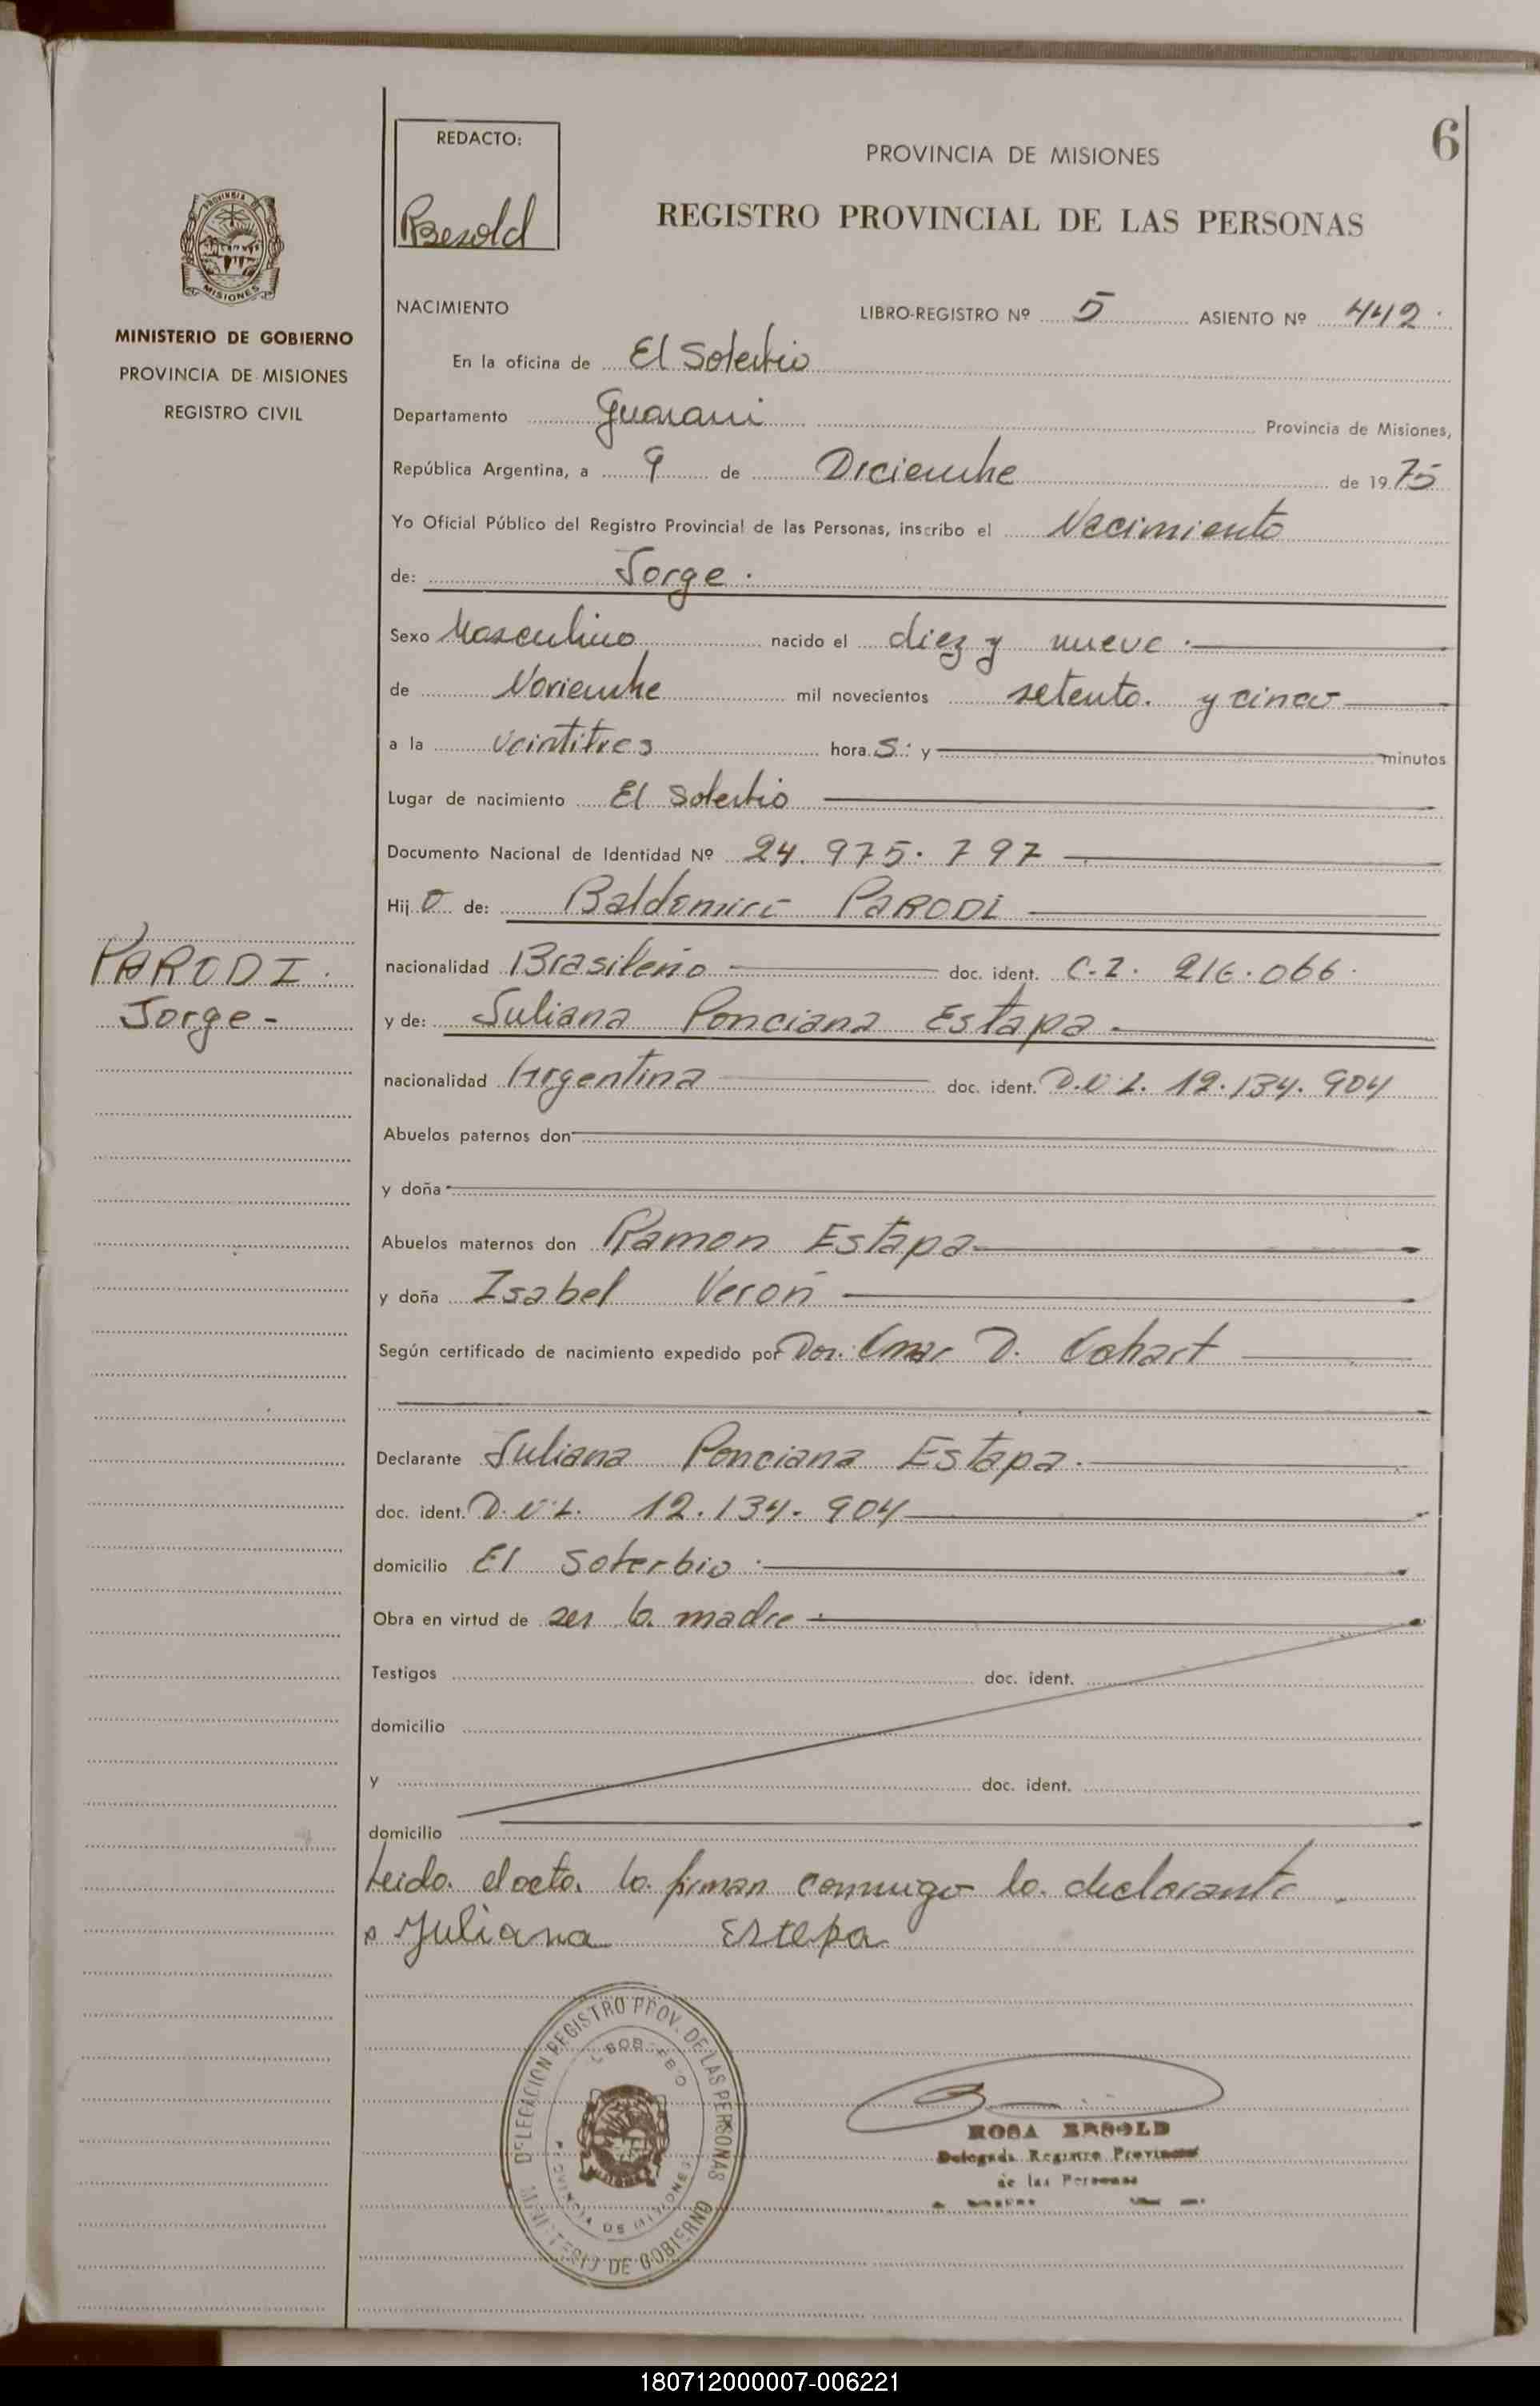 6
REDACTO:
Besold
PROVINCIA DE MISIONES
REGISTRO PROVINCIAL DE LAS PERSONAS
PROVINCIA DE
MISIONES
MINISTERIO DE GOBIERNO
PROVINCIA DE MISIONES
REGISTRO CIVIL
NACIMIENTO
LIBRO-REGISTRO Nº 5 ASIENTO Nº 442
En la oficina de El Soberbio
Departamento Guarani Provincia de Misiones,
República Argentina, a 9 de Diciembre de 1975
Yo Oficial Público del Registro Provincial de las Personas, inscribo el Nacimiento
de: Jorge.
Sexo Masculino nacido el diez y nueve
de Noviembre mil novecientos setenta y cinco
a la veintitres hora s: y minutos
Lugar de nacimiento El Soberbio
Documento Nacional de Identidad Nº 24.975.797
Hij o de: Baldomiro PARODI
PARODI.
Jorge-
nacionalidad Brasileño doc. ident. C.I. 216.066
y de: Juliana Ponciana Estapa
nacionalidad Argentina doc. ident. D.N.I. 12.134.904
Abuelos paternos don
y doña
Abuelos maternos don Ramon Estapa
y doña Isabel Veron
Según certificado de nacimiento expedido por Omar D.
Declarante Juliana Ponciana Estapa.
doc. ident. D.N.I. 12.134.904
domicilio El Soberbio
Obra en virtud de ser la madre
Testigos doc. ident.
domicilio
y doc. ident.
domicilio
Leida el acta la firman conmigo la declarante.
Juliana Estepa
DELEGACION REGISTRO PROV. DE LAS PERSONAS
EL SOBERBIO
PROVINCIA DE MISIONES
MINISTERIO DE GOBIERNO
ROSA BESOLD
Delegada Registro Provincial
de las Personas
180712000007-006221